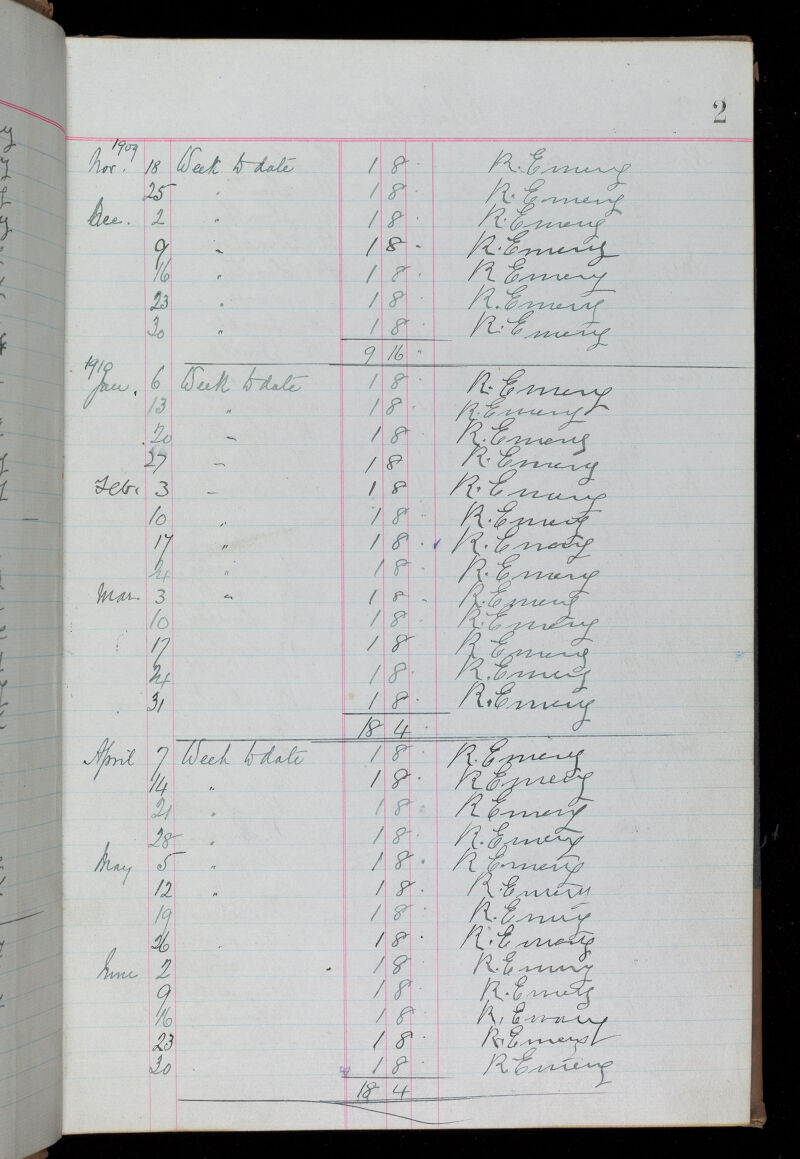 2
1909
Nov. 18 Week to date 1 8 . R. Emery
25 " 1 8 . R. Emery
Dec. 2 " 1 8 . R. Emery
9 " 1 8 - R. Emery
16 " 1 8 . R Emery
23 " 1 8 . R. Emery
30 " 1 8 . R. Emery
9 16 "
1910
Jan. 6 Week to date 1 8 . R. Emery
13 " 1 8 . R. Emery
20 " 1 8 . R. Emery
27 " 1 8 R. Emery
Feb. 3 " 1 8 R. Emery
10 " 1 8 - R. Emery
17 " 1 8 . R. Emery
24 " 1 8 . R. Emery
Mar. 3 " 1 8 - R. Emery
10 1 8 . R. Emery
17 1 8 R Emery
24 1 8 . R. Emery
31 1 8 . R. Emery
18 4 .
April 7 Week to date 1 8 . R. Emery
14 " 1 8 . R Emery
21 " 1 8 . R Emery
28 " 1 8 . R. Emery
May 5 " 1 8 . R Emery
12 " 1 8 . R. Emery
19 1 8 . R. Emery
26 " 1 8 . R. Emery
June 2 1 8 . R. Emery
9 1 8 . R. Emery
16 1 8 . R. Emery
23 1 8 . R. Emery
30 1 8 . R Emery
18 4